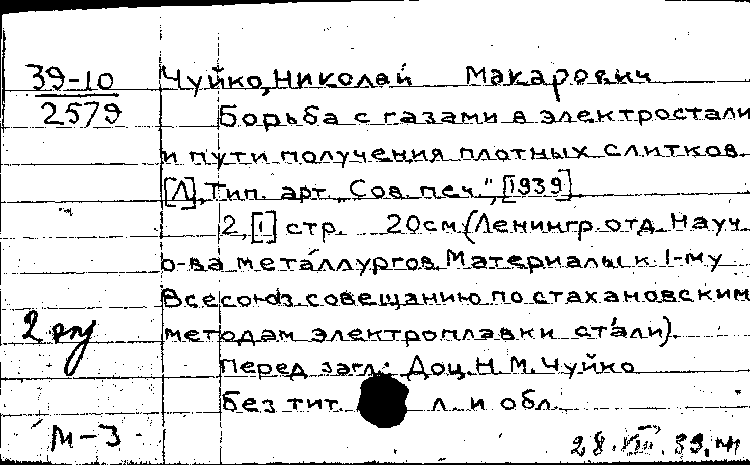 39-10
2579
Чуйко, Николай Макарович
Борьба с газами в электростали
и пути получения плотных слитков.
[Л], Тип. арт. „Сов. печ.", [1939].
2, [1] стр. 20см. (Ленингр. отд. Науч.
о-ва металлургов. Материалы к 1-му
Всесоюз. совещанию по стахановским
методам электроплавки стали).
Перед загл.: Доц. Н. М. Чуйко
Без тит. л. и обл.
2 экз
М-3
28.VIII.39.